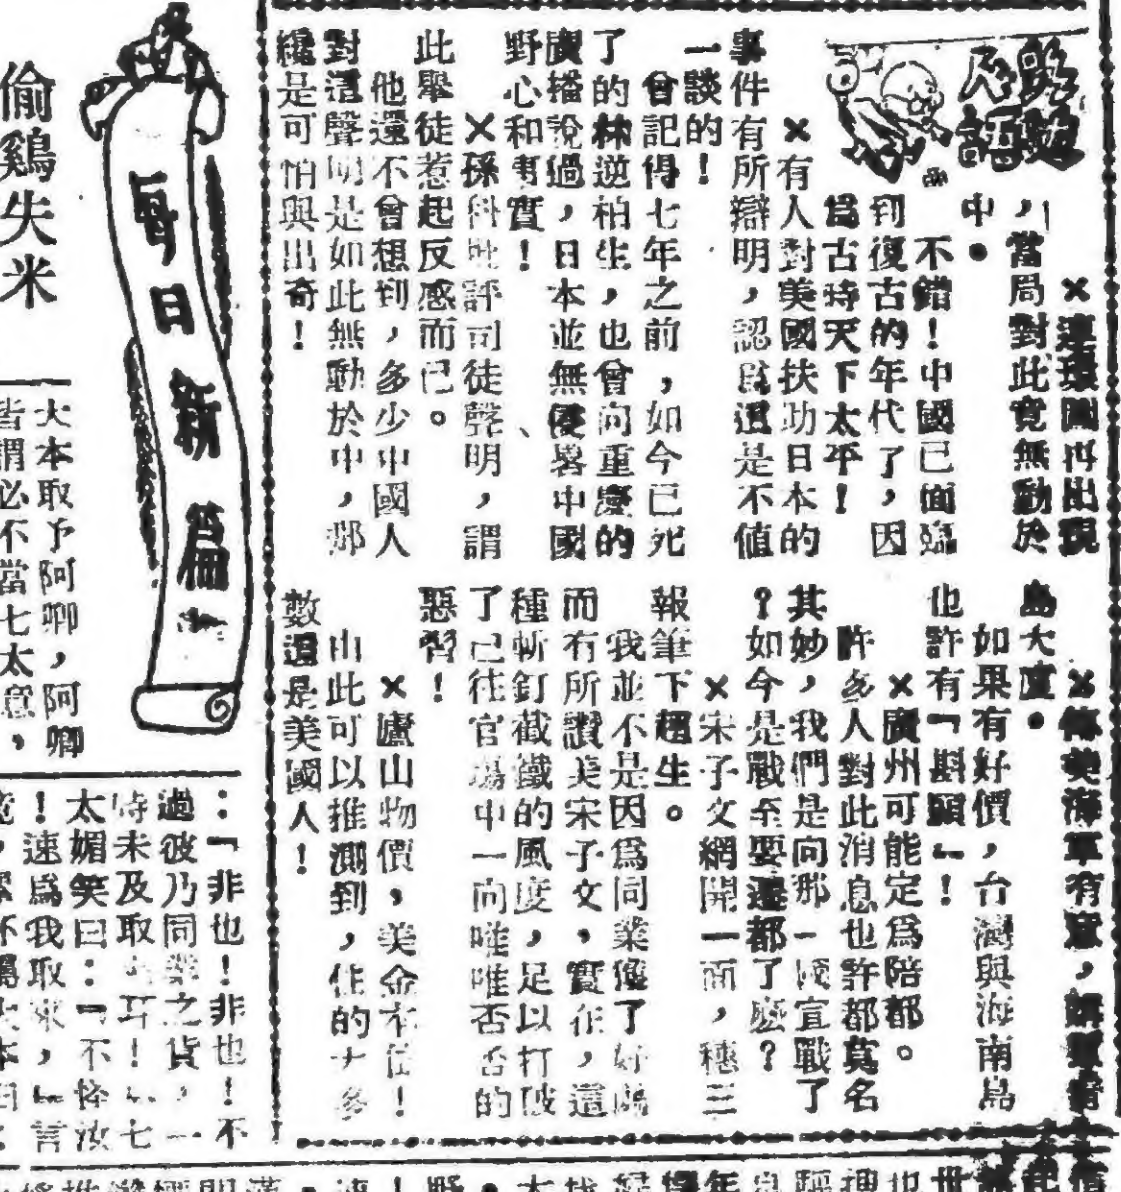 ×連環圖再出現
,當局對此竟無動於
中。
不錯!中國已面臨
到復古的年代了,因
爲古時天下太平!
×有人對美國扶助日本的
事件有所辯明,認爲這是不值
一談的!
曾記得七年之前,如今已死
了的林逆柏生,也曾向重慶的
廣播說過,日本並無侵畧中國
野心和事實!
×孫科批評司徒聲明,謂
此舉徒惹起反感而已。
他還不曾想到,多少中國人
對這聲明是如此無動於中,那
纔是可怕與出奇!
×傳美海軍有意,
島大度。
如果有好價,台灣與海南島
也許有「斟頭」!
×廣州可能定爲陪都。
許多人對此消息也許都莫名
其妙,我們是向那一國宣戰了
?如今是戰至要遷都了麼?
×宋子文網開一面,穗三
報筆下超生。
我並不是因爲同業獲了好處
而有所讚美宋子文,實在,這
種斬釘截鐵的風度,足以打破
了已往官場中一向唯唯否否的
惡習!
×廬山物價,美金本位!
由此可以推測到,住的大多
數還是美國人!
每日新篇
偷鷄失米
大本取予阿卿,阿卿
皆謂必不當七太意,
:「非也!非也!不
過彼乃同業之貨,一
時未及取出耳!」七
太媚笑曰:「不怪汝
!速爲我取來,」言